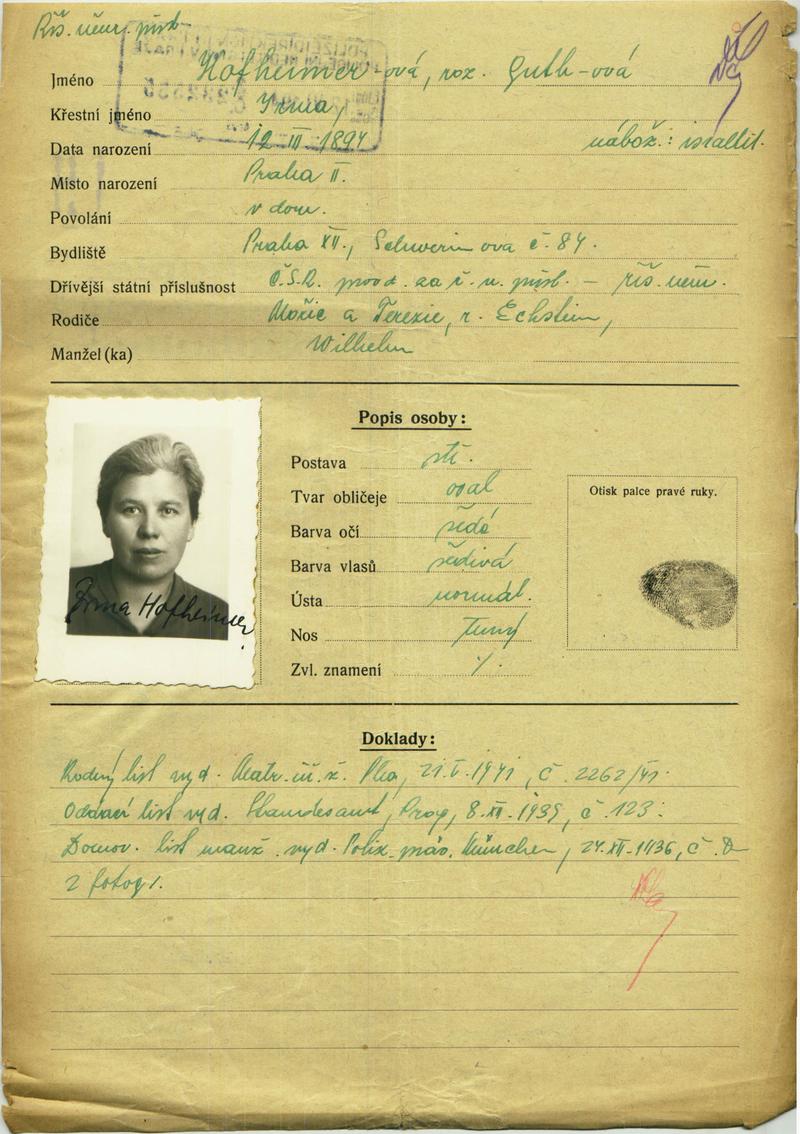 Říš. něm. přísl.
Jméno Hofheimer-ová, roz. Guth-ová
Křestní jméno Irma,
Data narození 12. III. 1894 nábož.: israelit.
Místo narození Praha II.
Povolání v dom.
Bydliště Praha XII., Schwerinova č. 84.
Dřívější státní příslušnost Č.S.R. prvod. za ř. n. přísl. – říš. něm.
Rodiče Mořic a Terezie, r. Echstein,
Manžel (ka) Wilhelm
Popis osoby:
Postava stř.
Tvar obličeje oval
Barva očí šedé
Barva vlasů šedivá
Ústa normál.
Nos
Zvl. znamení /.
Otisk palce pravé ruky.
Irma Hofheimer
Doklady:
Rodný list vyd. Matr. ž. Pha, 21. V. 1941, č. 2262/41.
Oddací list vyd. Standesamt, Prag, 8. XII. 1939, č. 123.
Domov. list manž. vyd. Poliz. präs. München, 24. XII. 1936, č.
2 fotogr.